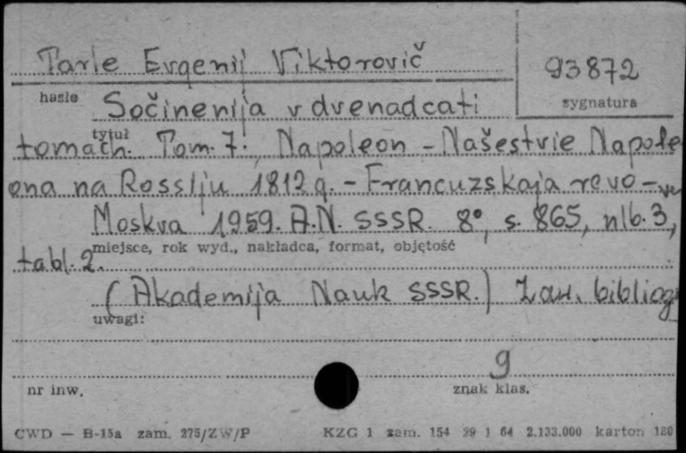 Tarle Evgenij Viktorovič 93872
hasło sygnatura
Sočinenija v dvenadcati
tytuł
tomach. Tom. 7. Napoleon - Našestvie Napole
ona na Rossiju 1812 g. - Francuzskaja revo-
Moskva 1959. A.N. SSSR. 8°, s. 865, nlb. 3,
miejsce, rok wyd., nakładca, format, objętość
tabl. 2.
(Akademija Nauk SSSR.) Zaw. bibliogr
uwagi:
9
nr inw. znak klas.
CWD — B-15a zam. 275/ZW/P KZG 1 zam. 154 29 1 64 2.133.000 karton 180